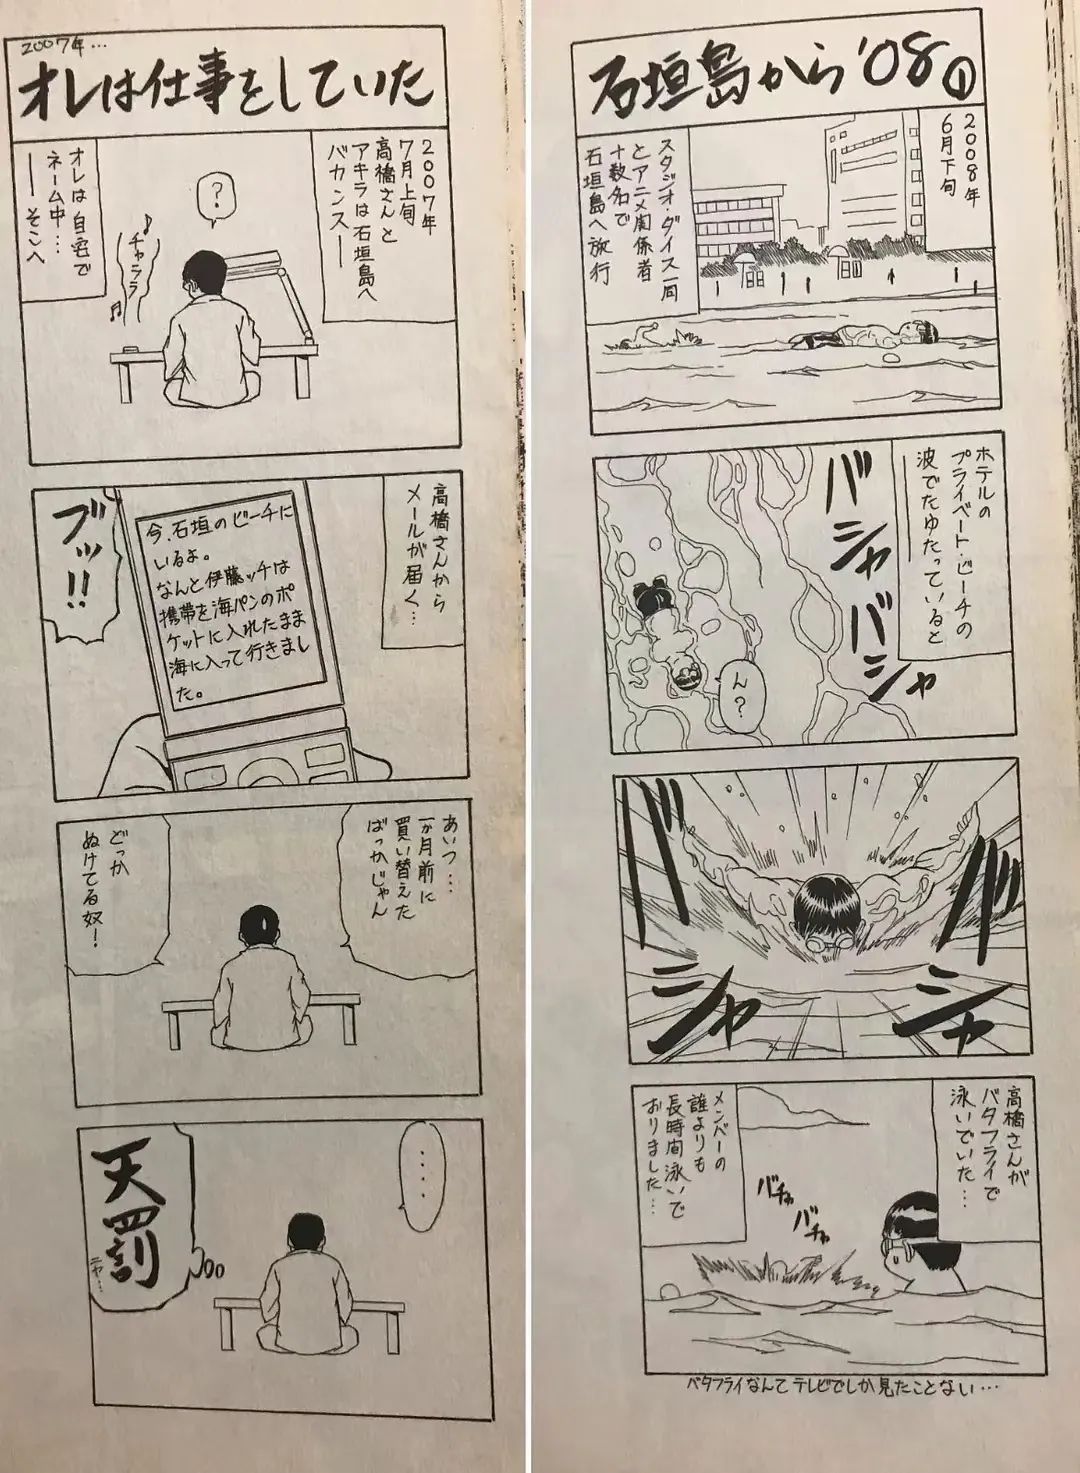 石垣島から'08①
2008年
6月下旬
スタジオ・ダイス一同
とアニメ関係者
十数名で
石垣島へ旅行
ホテルの
プライベート・ビーチの
波でたゆたっていると
バシャ
バシャ
ん?
バ
シャ
バ
シャ
高橋さんが
バタフライで
泳いでいた…
バチャ
バチャ
メンバーの
誰よりも
長時間泳いで
おりました…
バタフライなんてテレビでしか見たことない…
2007年…
オレは仕事をしていた
2007年
7月上旬
高橋さんと
アキラは石垣島へ
バカンス―
?
♪チャララ♫
オレは自宅で
ネーム中…
―そこへ
高橋さんから
メールが届く…
今、石垣のビーチに
いるよ。
なんと伊藤ッチは
携帯を海パンのポ
ケットに入れたまま
海に入って行きまし
た。
ブッ!!
あいつ…
一か月前に
買い替えた
ばっかじゃん
どっか
ぬけてる奴!
‥‥
天罰
ニヤ…